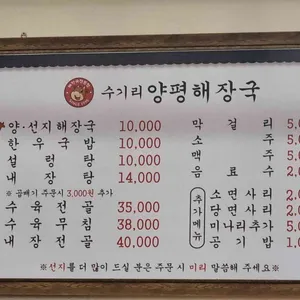 수기리 양평해장국
양·선지해장국 10,000
한우국밥 10,000
설렁탕 10,000
내장탕 14,000
※ 곱빼기 주문시 3,000원 추가
수육전골 35,000
수육무침 38,000
내장전골 40,000
막걸리 5,0
소주 5,
맥주 5,
음료수 2,
추가메뉴
소면사리 2,0
당면사리 2,0
미나리추가 5,0
공기밥 1,0
※선지를 더 많이 드실 분은 주문시 미리 말씀해 주세요※